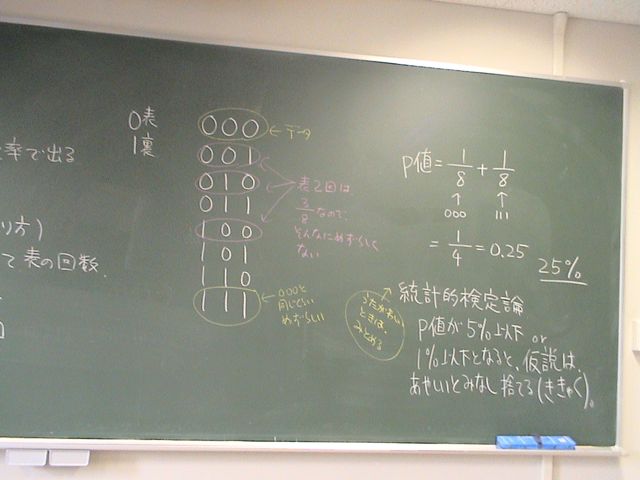 0表
1裏
率で出る
り方)
て表の回数.
000
001
010
011
100
101
110
111
←データ
表2回は
3/8なので、
そんなにめずらしく
ない
←000と
同じくらい
めずらしい
P値 = 1/8 + 1/8
↑ ↑
000 111
= 1/4 = 0.25
25%
統計的検定論
P値が5%以下 or
1%以下となると、仮説は、
あやしいとみなし捨てる(ききゃく)。
うたがわしい
ときは、
みとめる